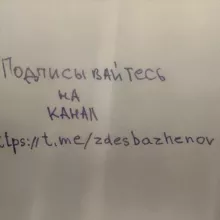 Подписывайтесь
на
канал
ttps://t.me/zdesbazhenov